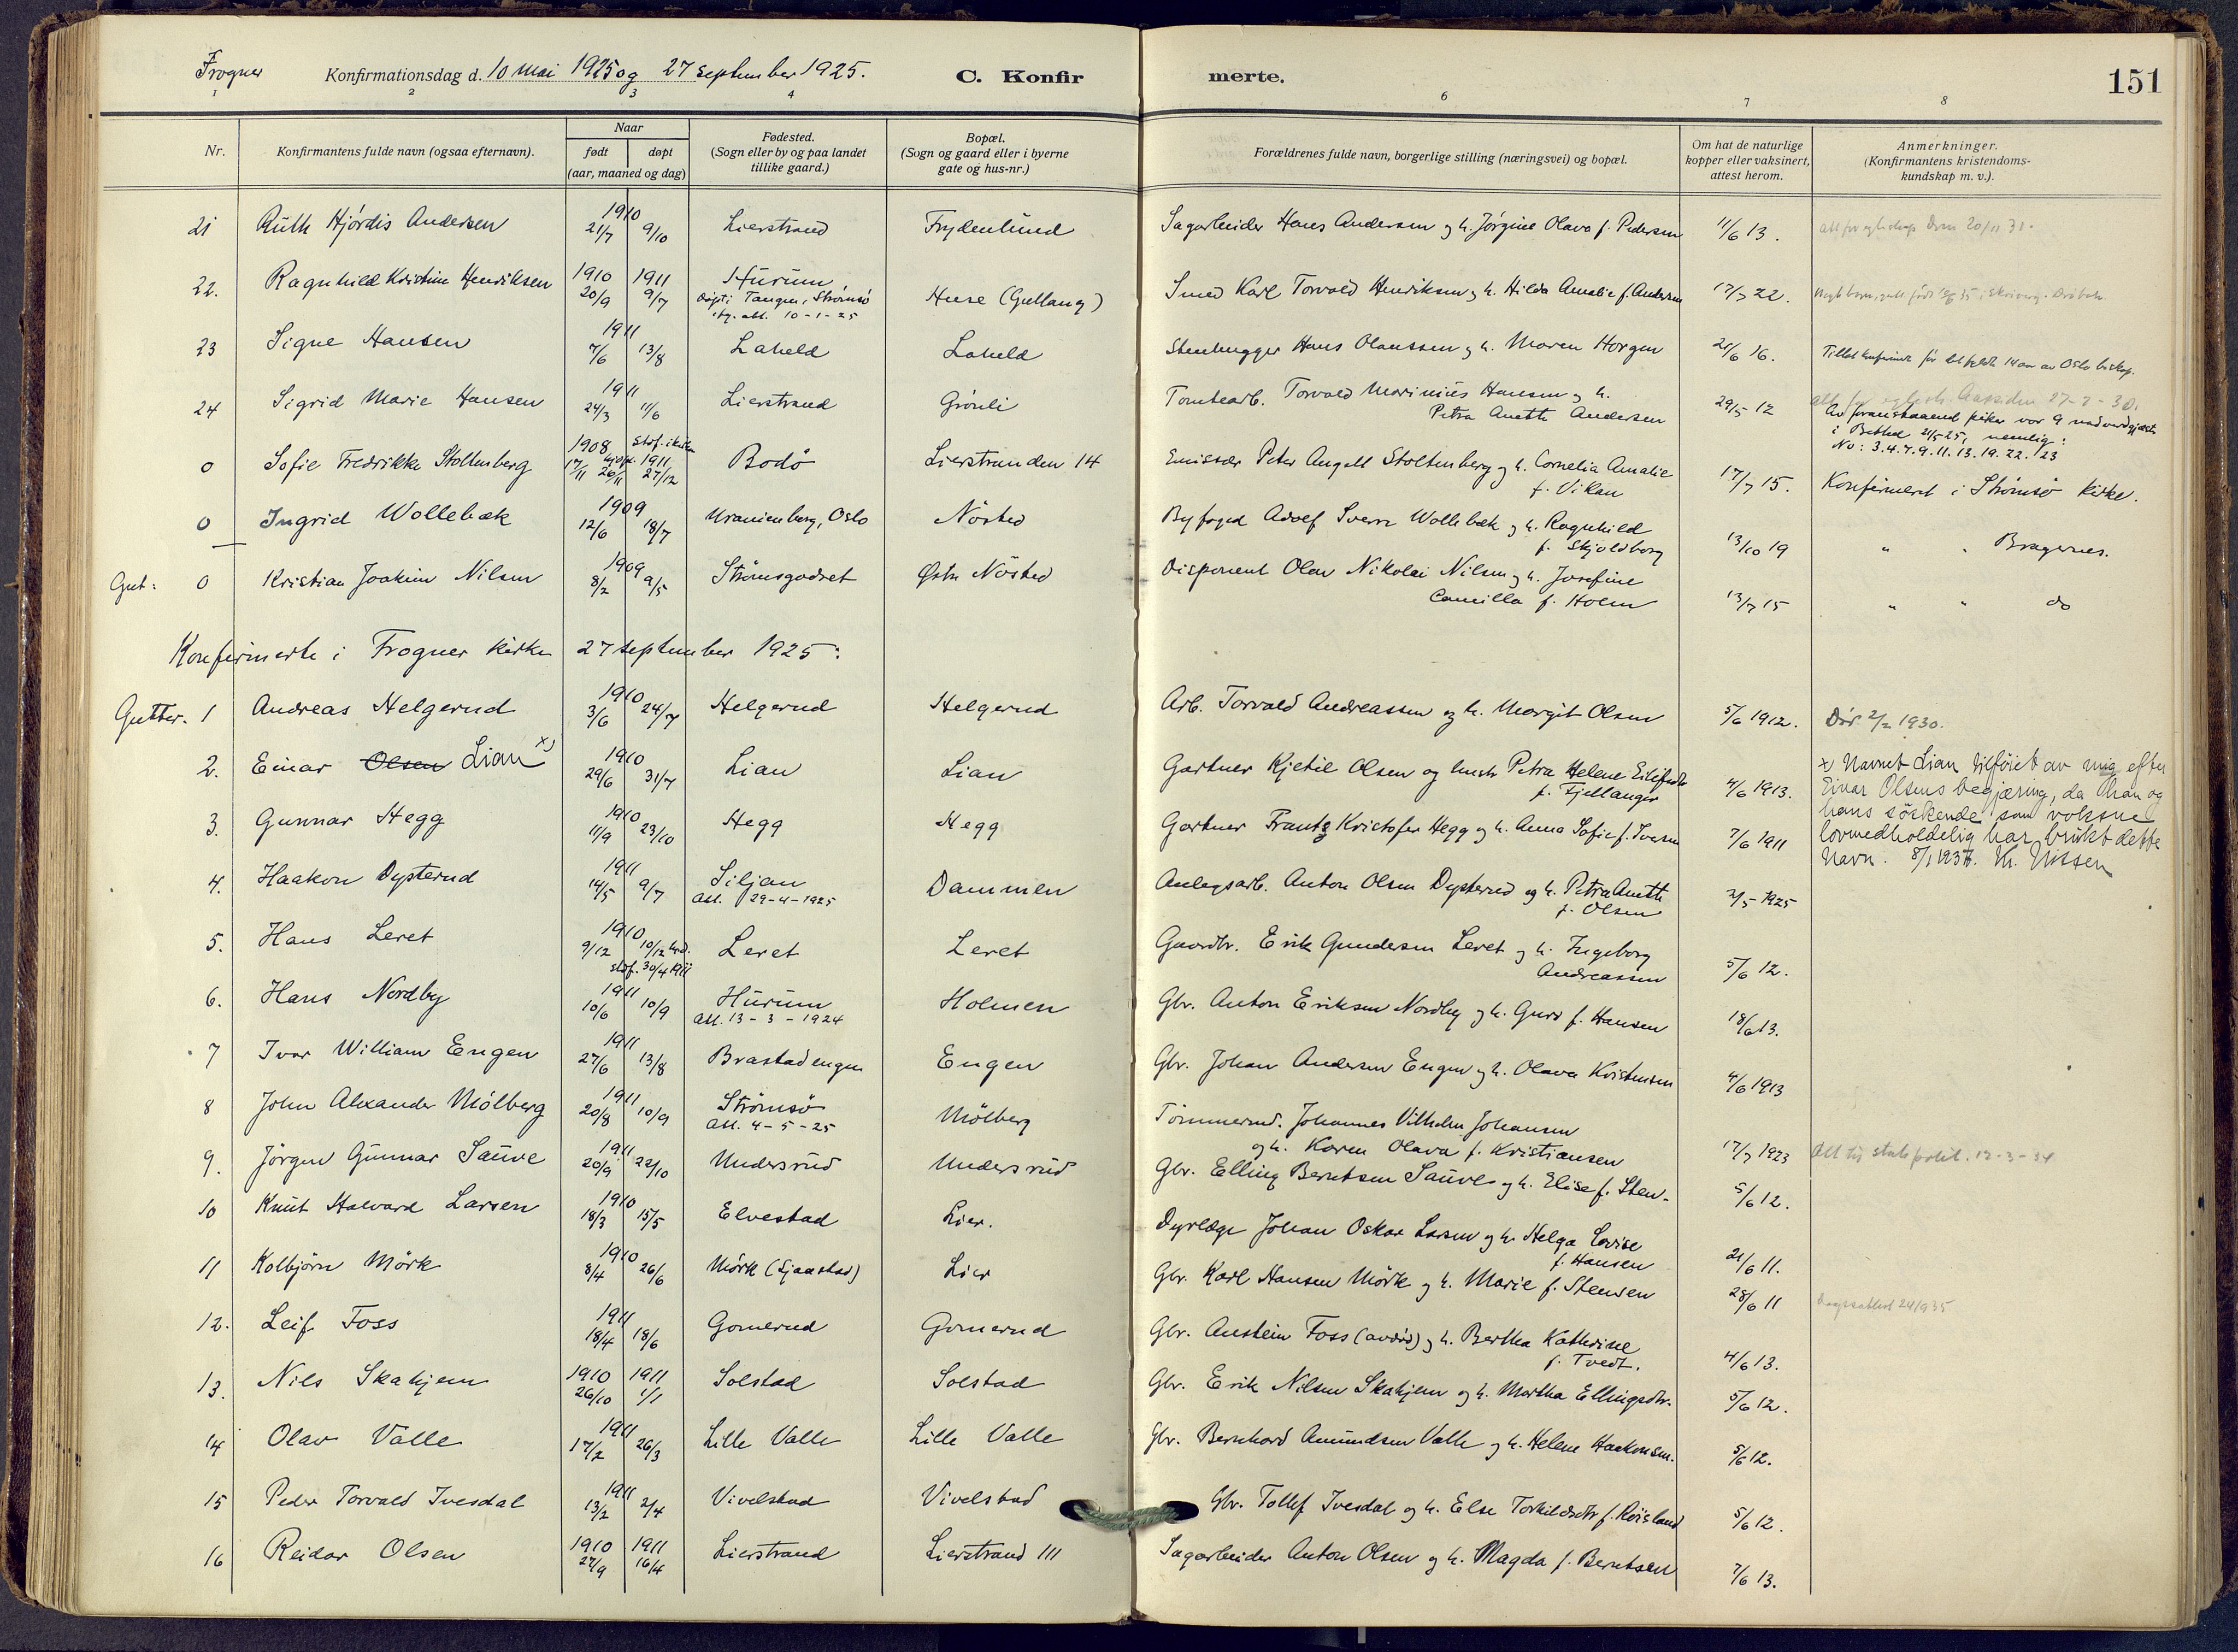 Frogner Konfirmationsdag d. 10 Mai 1925 og 27 september 1925. C. Konfir merte. 151
1 2 3 4 6 7 8
Nr. Konfirmantens fulde navn (ogsaa efternavn). Naar født døpt (aar, maaned og dag) Fødested. (Sogn eller by og paa landet tillike gaard.) Bopæl. (Sogn og gaard eller i byerne gate og hus-nr.) Forældrenes fulde navn, borgerlige stilling (næringsvei) og bopæl. Om hat de naturlige kopper eller vaksinert, attest herom. Anmerkninger. (Konfirmantens kristendoms-kundskap m. v.).
21 Ruth Hjørdis Andersen 1910 21/7 9/10 Lierstrand Frydenlund Sagarbeider Hans Andersen og h. Jørgine Olava f. Pedersen 11/6 13.
22. Ragnhild Kristine Henriksen 1910 20/9 1911 9/7 Hurum døpt i Tangen, Strømsø att. 10-1-25 Huse (Gullaug) Smed Karl Torvald Henriksen og h. Hilda Amalie f. Andersen 17/7 22.
23 Signe Hansen 1911 7/6 13/8 Laheld Laheld Stenhugger Hans Olaussen og h. Maren Horgen 21/6 16. Tillat konfirmert før det fyldte 14 aar av Oslo biskop.
24 Sigrid Marie Hansen 1911 24/3 11/6 Lierstrand Grönli Tomtearb. Torvald Marinius Hansen og h. Petra Anette Andersen 29/5 12 Av foranstaaende piker var 9 nadverdgjæster i Bethel 21/5-25, nemlig: No: 3. 4. 7. 9. 11. 13. 19. 22. 23
0 Sofie Fredrikke Stoltenberg 1908 17/11 hjdpt. 26/11 Stdf. i kirken 1911 27/12 Bodö Lierstranden 14 Emissær Peter Angell Stoltenberg og h. Cornelia Amalie f. Vikan 17/7 15. Konfirmert i Strømsø kirke.
0 Ingrid Wollebæk 1909 12/6 18/7 Uranienborg, Oslo Nösted Byfoged Adolf Sverre Wollebæk og h. Ragnhild f. Skjoldborg 13/10 19 " " Bragernes.
Gut: 0 Kristian Joakim Nilsen 1909 8/2 9/5 Strømsgodset Østre Nösted Disponent Olav Nikolai Nilsen og h. Josefine Camilla f. Holm 13/7 15 " " do
Konfirmerte i Frogner kirke 27 september 1925:
Gutter. 1 Andreas Helgerud 1910 3/6 24/7 Helgerud Helgerud Arb. Torvald Andreassen og h. Margit Olsen 5/6 1912. Død 2/2 1930.
2. Einar Olsen Lian x) 1910 29/6 31/7 Lian Lian Gartner Kjetil Olsen og hustr. Petra Helene Eilifsdtr f. Fjellanger 4/6 1913. x Navnet Lian tilføiet av mig efter Einar Olsens begjæring, da han og hans söskende som voksne lovmedholdelig har brukt dette navn. 8/1 1937. Th. Nissen
3. Gunnar Hegg 1910 11/9 23/10 Hegg Hegg Gartner Frantz Kristofer Hegg og h. Anna Sofie f. Iversen 7/6 1911
4. Haakon Dysterud 1911 14/5 9/7 Siljan Att. 29-4-1925 Dammen Anlegsarb. Anton Olsen Dysterud og h. Petra Anette f. Olsen 2/5 1925
5. Hans Leret 1910 9/12 10/12 hjd. stdf. 30/4 1911 Leret Leret Gaardbr. Erik Gundersen Leret og h. Ingeborg Andreassen 5/6 12.
6. Hans Nordby 1911 10/6 10/9 Hurum Att. 13-3-1924 Holmen Gbr. Anton Eriksen Nordby og h. Guri f. Hansen 18/6 13.
7 Ivar William Engen 1911 27/6 13/8 Brastadengen Engen Gbr. Johan Andersen Engen og h. Olava Kristensen 4/6 1913
8 John Alexander Mölberg 1911 20/8 10/9 Strømsø Att. 4-5-25 Mölberg Tömmermd. Johannes Vilhelm Johansen og h. Karen Olava f. Kristiansen 17/7 1923 Att til statspoliti. 12-3-34
9. Jörgen Gunnar Sauve 1911 20/9 22/10 Undersrud Undersrud Gbr. Elling Berntsen Sauve og h. Elise f. Sten. 5/6 12.
10 Knut Halvard Larsen 1910 18/3 15/5 Elvestad Lier. Dyrlæge Johan Oskar Larsen og h. Helga Lovise f. Hansen 21/6 11.
11 Kolbjörn Mörk 1910 8/4 26/6 Mörk (Sjaastad) Lier Gbr. Karl Hansen Mörk og h. Marie f. Steensen 28/6 11
12. Leif Foss 1911 18/4 18/6 Gomerud Gomerud Gbr. Anstein Foss (avdöd) og h. Bertha Kathrine f. Tvedt. 4/6 13.
13. Nils Skahjem 1910 26/10 1911 1/1 Solstad Solstad Gbr. Erik Nilsen Skahjem og h. Martha Ellingsdtr. 5/6 12.
14 Olav Valle 1911 17/2 26/3 Lille Valle Lille Valle Gbr. Bernhard Amundsen Valle og h. Helene Haakonsen. 5/6 12.
15 Peder Torvald Ivesdal 1911 13/2 2/4 Vivelstad Vivelstad Gbr. Tollef Ivesdal og h. Else Torkildsdtr f. Röisland 5/6 12.
16 Reidar Olsen 1910 27/9 1911 16/4 Lierstrand Lierstrand 111 Sagarbeider Anton Olsen og h. Magda f. Berntsen 7/6 13.